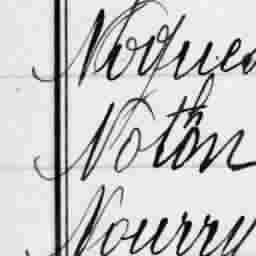 Nogues
Nothon
Nourry